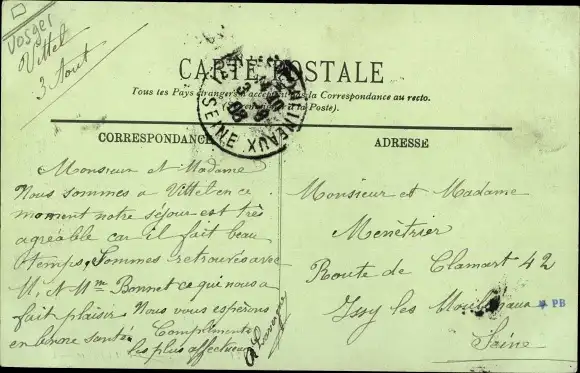 Vosges
Vittel
3 Aout
CARTE POSTALE
Tous les Pays étrangers n'acceptent pas la Correspondance au recto.
à la Poste).
CORRESPONDANCE
ADRESSE
ISSY-LES-MOULINEAUX
SEINE
08
Monsieur et Madame
Nous sommes a Vittel en ce
moment notre séjour est très
agréable car il fait beau
temps, Sommes retrouvés avec
M. et Mme Bonnet ce qui nous a
fait plaisir Nous vous espérons
en bonne santé. Compliments
les plus affectueux
Monsieur et Madame
Menêtrier
Route de Clamart 42
Issy les Moulineaux
Seine
PB